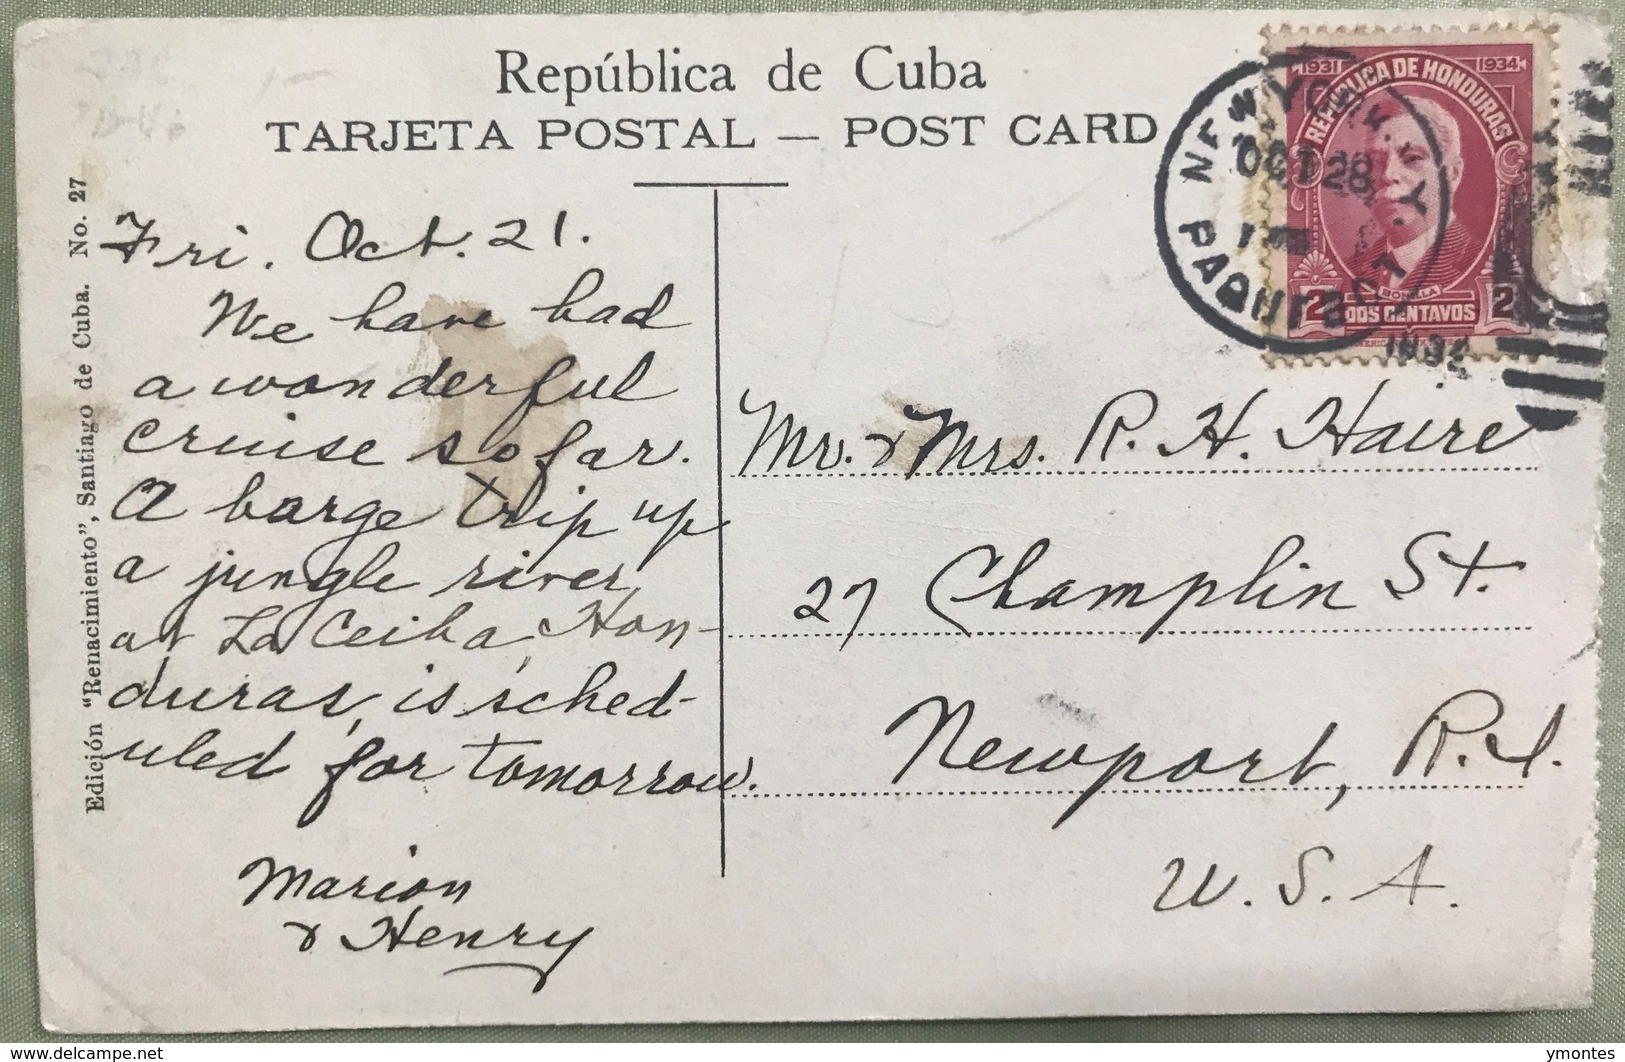 República de Cuba
TARJETA POSTAL — POST CARD
Edición "Renacimiento", Santiago de Cuba. No. 27
Fri. Oct. 21.
We have had
a wonderful
cruise so far.
A barge trip up
a jungle river
at La Ceiba, Hon-
duras, is sched-
uled for tomorrow.
Marion
& Henry
1931 1934
REPUBLICA DE HONDURAS
BONILLA
2 DOS CENTAVOS 2
NEW YORK, N.Y.
OCT 28
1932
PAQUEBOT
Mr. & Mrs. R. H. Haire
27 Champlin St.
Newport, R.I.
U.S.A.
www.delcampe.net
ymontes